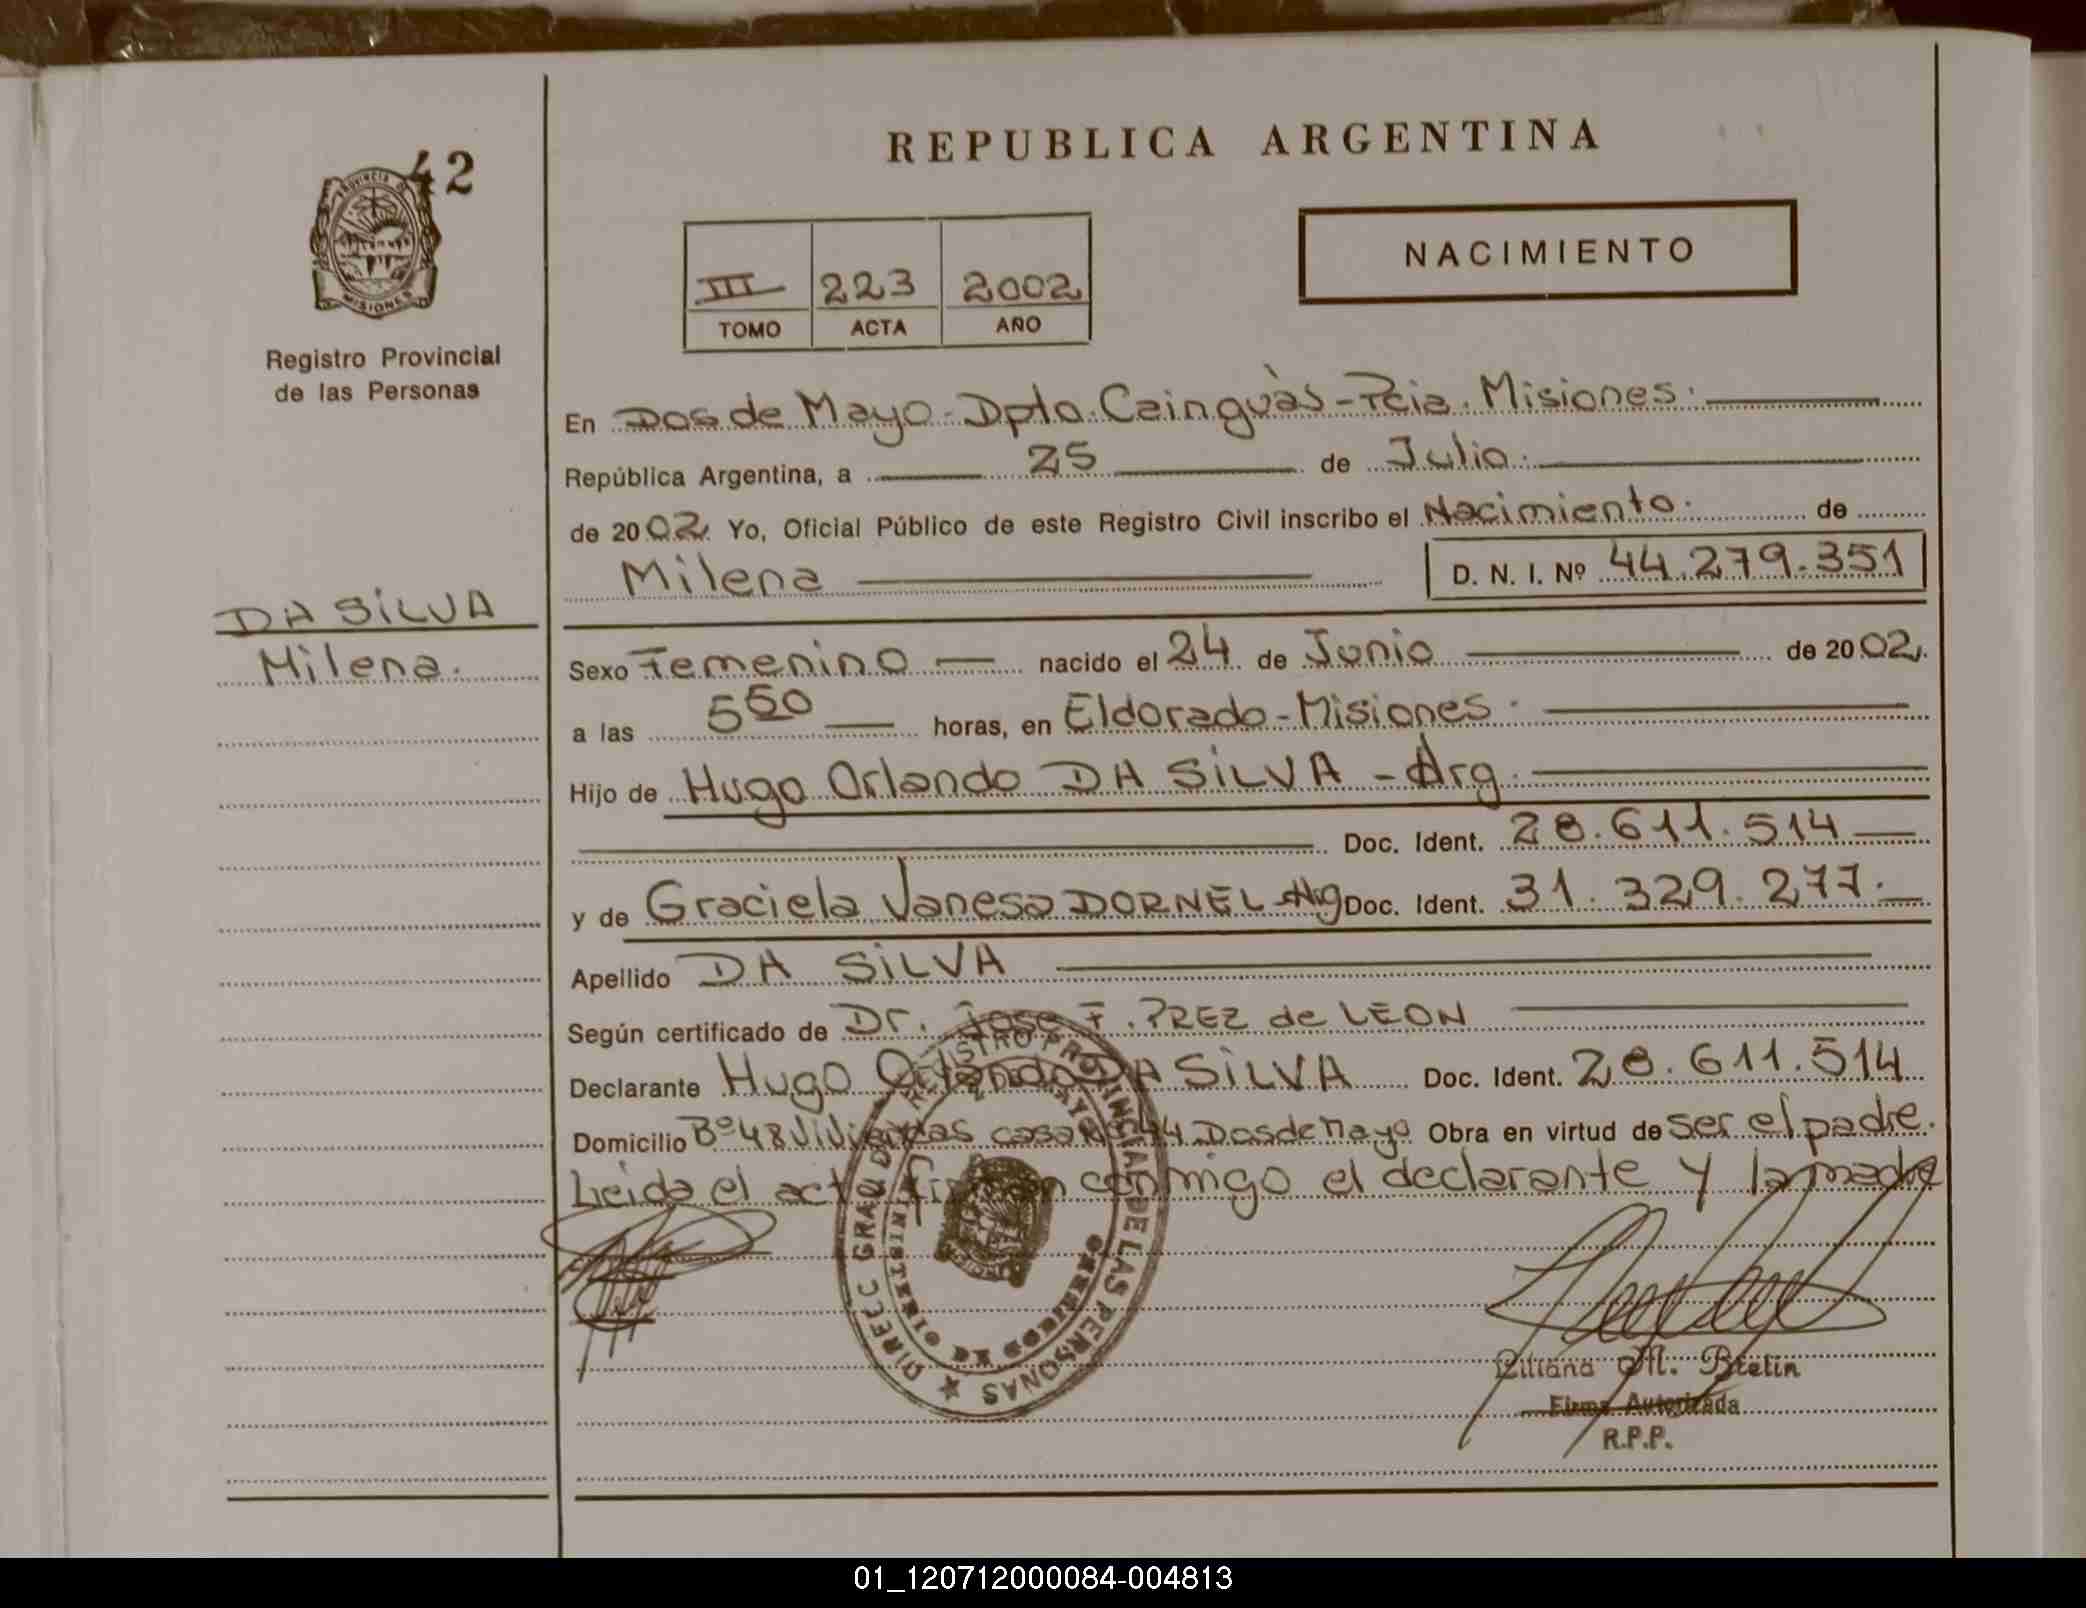 42
PROVINCIA DE
MISIONES
Registro Provincial
de las Personas
REPUBLICA ARGENTINA
III 223 2002
TOMO ACTA AÑO
NACIMIENTO
En Dos de Mayo - Dpto. Cainguàs - Pcia. Misiones.
República Argentina, a 25 de Julio.
de 2002. Yo, Oficial Público de este Registro Civil inscribo el Nacimiento. de
Milena D. N. I. Nº 44.279.351
DA SILVA
Milena.
Sexo Femenino nacido el 24 de Junio de 2002.
a las 5 50 horas, en Eldorado - Misiones.
Hijo de Hugo Orlando DA SILVA - Arg.
Doc. Ident. 28.611.514
y de Graciela Vanesa DORNEL - Arg Doc. Ident. 31.329.277.
Apellido DA SILVA
Según certificado de Dr. Jose F. PREZ de LEON
Declarante Hugo Orlando DA SILVA Doc. Ident. 28.611.514
Domicilio Bº 48 Viviendas casa Nº 44 Dos de Mayo Obra en virtud de ser el padre.
Leida el acta firman conmigo el declarante y la madre
DIRECC GRAL DEL REGISTRO PROVINCIAL DE LAS PERSONAS
Liliana M. Btelin
Firma Autorizada
R.P.P.
01_120712000084-004813